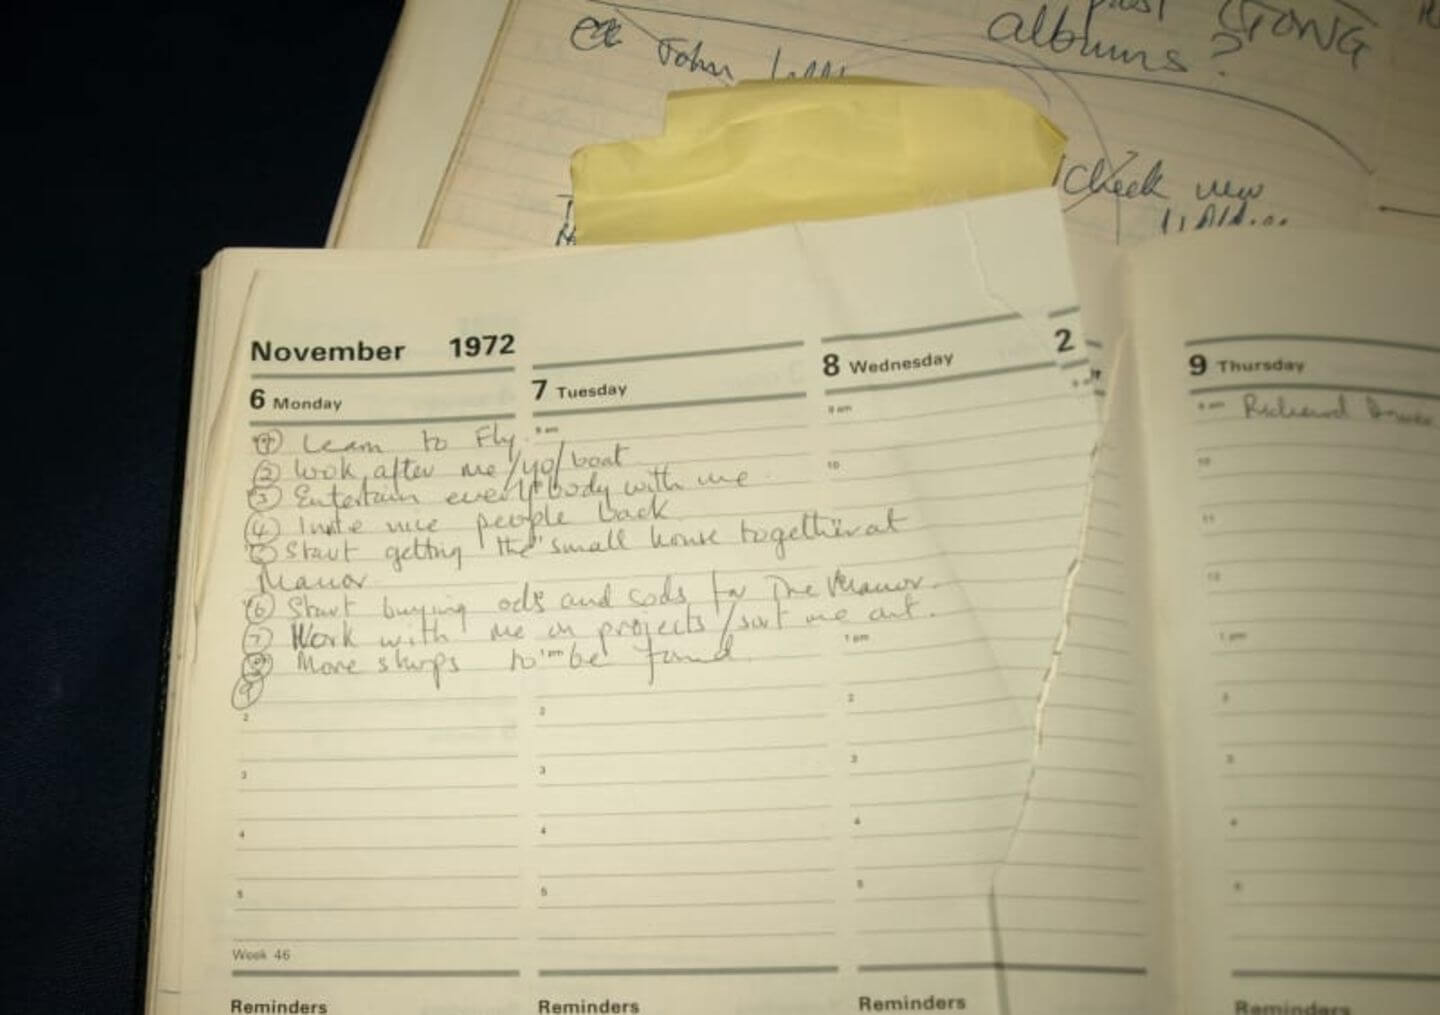 past
albums?
John
Check new
November 1972
2
6 Monday
7 Tuesday
8 Wednesday
9 Thursday
9 am
9 am
9 am Richard
① Learn to Fly
② Look after me/yo/boat
③ Entertain everybody with me
④ Invite nice people back
⑤ Start getting the small house together at
Manor
⑥ Start buying ods and sods for The Manor.
⑦ Work with me on projects/sort me out.
⑧ More shops to be found.
⑨
10
10
11
11
12
12
1 pm
1 pm
1 pm
2
2
2
2
3
3
3
3
4
4
4
4
5
5
5
5
Week 46
Reminders
Reminders
Reminders
Reminders